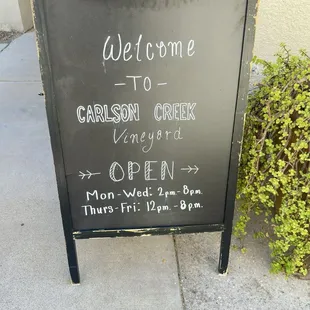 Welcome
- TO -
CARLSON CREEK
Vineyard
OPEN
Mon-Wed: 2p.m. - 8p.m.
Thurs-Fri: 12p.m. - 8p.m.